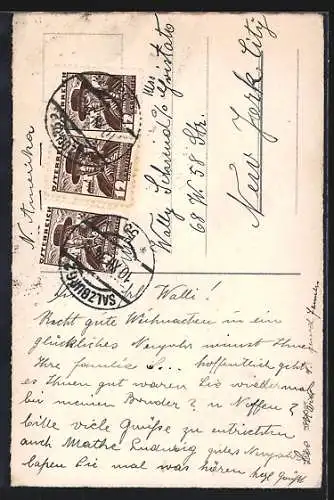 N. Amerika
ÖSTERREICH
12
SALZBURG 2
Wally Schmid
68 W 58 Str.
New York City
Walli!
Recht gute Weihnachten u ein
glückliches Neujahr wünscht Ihnen
Ihre familie S... hoffentlich geht
es Ihnen gut waren Sie wiedermal
bei meinen Bruder? u Neffen?
bitte viele Grüße zu entrichten
auch Mathe Ludwig gutes Neujahr
laßen Sie mal was hören herzl Grüße